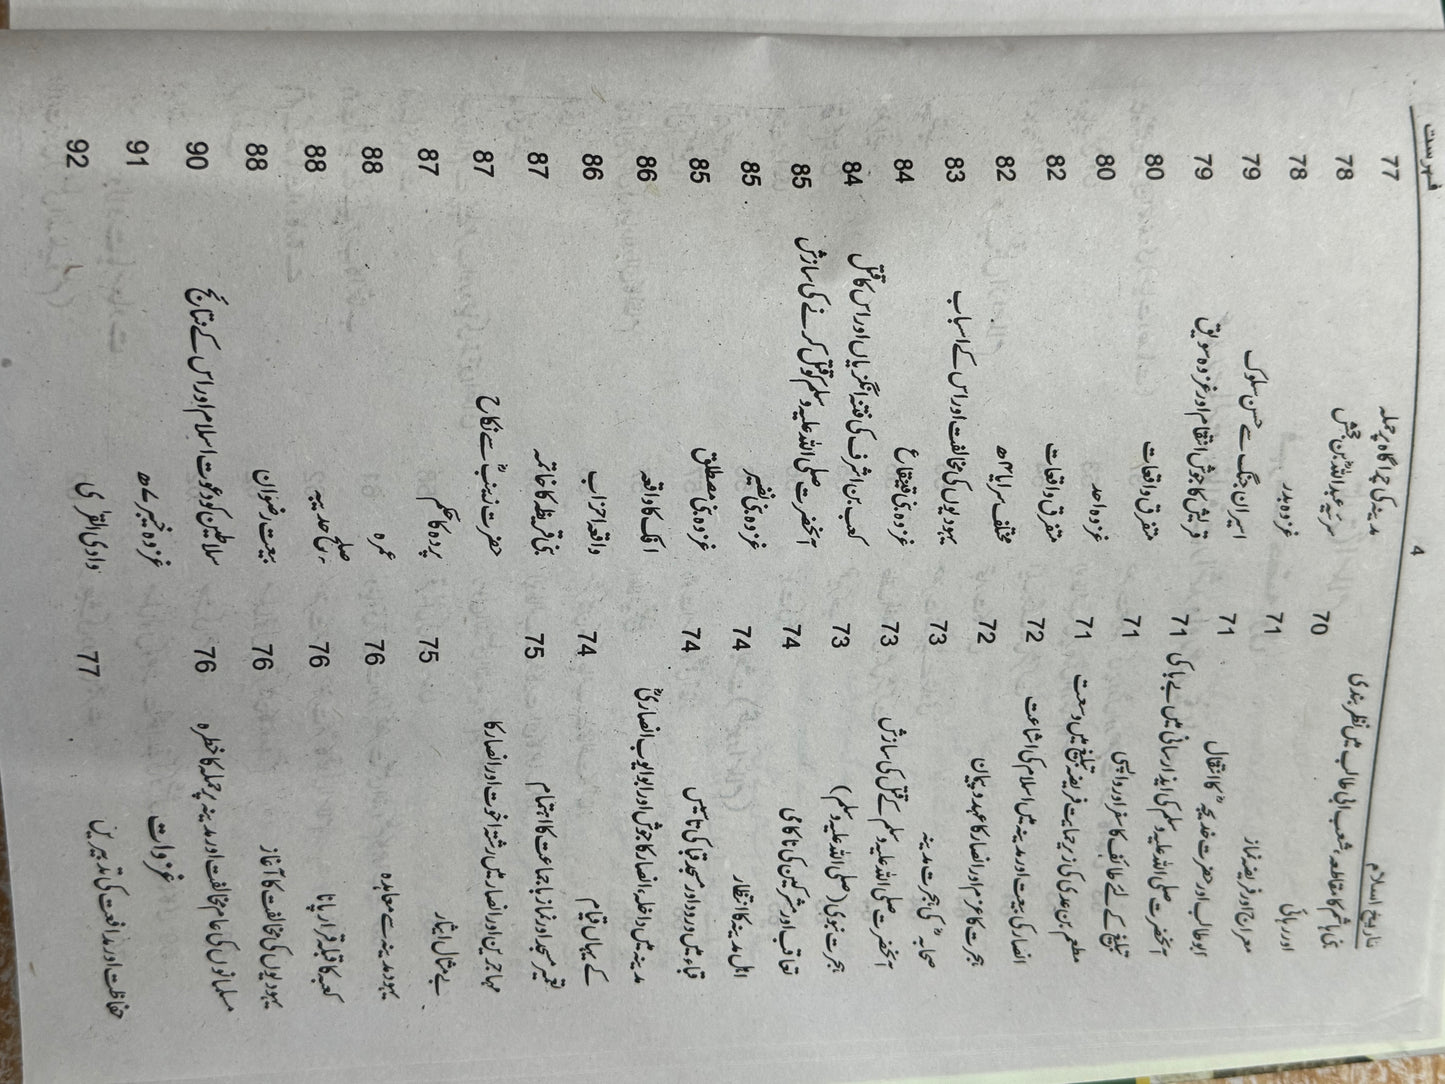 تاریخ اسلام 4 فہرست
بنی ہاشم کا مقاطعہ، شعب ابی طالب میں نظر بندی
اور رہائی 70
معراج اور فریضہ نماز 71
ابوطالب اور حضرت خدیجہؓ کا انتقال 71
آنحضرت صلی اللہ علیہ وسلم کی ایذا رسانی میں بے باکی 71
تبلیغ کے لئے طائف کا سفر اور واپسی 71
مطعم بن عدی کی زیر حمایت فریضہ تبلیغ میں وسعت 71
انصار کی بیعت اور مدینہ میں اسلام کی اشاعت 72
ہجرت کا عزم اور انصار کا عہد و پیمان 72
صحابہؓ کی ہجرت مدینہ 73
آنحضرت صلی اللہ علیہ وسلم کے قتل کی سازش 73
ہجرت نبوی (صلی اللہ علیہ وسلم) 73
تعاقب اور مشرکین کی ناکامی 74
اہل مدینہ کا انتظار 74
قباء میں ورود اور مسجد قبا کی تاسیس 74
مدینہ میں داخلہ، انصار کا جوش اور ابو ایوب انصاریؓ
کے یہاں قیام 74
تعمیر مسجد اور نماز باجماعت کا اہتمام 75
مہاجرین اور انصار میں رشتہ اخوت اور انصار کا
بے مثال ایثار 75
یہود مدینہ سے معاہدہ 76
کعبہ کا قبلہ قرار پانا 76
یہودیوں کی مخالفت کا آغاز 76
مسلمانوں کی عام مخالفت اور مدینہ پر حملہ کا خطرہ 76
غزوات
حفاظت اور مدافعت کی تدبیریں 77
مدینہ کی چراگاہ پر حملہ 77
سریہ عبداللہؓ بن جحش 78
غزوہ بدر 78
اسیران جنگ سے حسن سلوک 79
قریش کا جوش انتقام اور غزوہ سویق 79
متفرق واقعات 80
غزوہ احد 80
متفرق واقعات 82
مختلف سرایا ۴ھ 82
یہودیوں کی مخالفت اور اس کے اسباب 83
غزوہ بنی قینقاع 84
کعب بن اشرف کی فتنہ انگیزیاں اور اس کا قتل 84
آنحضرت صلی اللہ علیہ وسلم کو قتل کرنے کی سازش 85
غزوہ بنی نضیر 85
غزوہ بنی مصطلق 85
افک کا واقعہ 86
واقعہ احزاب 86
بنی قریظہ کا خاتمہ 87
حضرت زینبؓ سے نکاح 87
پردہ کا حکم 87
عمرہ 88
صلح حدیبیہ 88
بیعت رضوان 88
سلاطین کو دعوت اسلام اور اس کے نتائج 90
غزوہ خیبر ۷ھ 91
وادی القریٰ 92